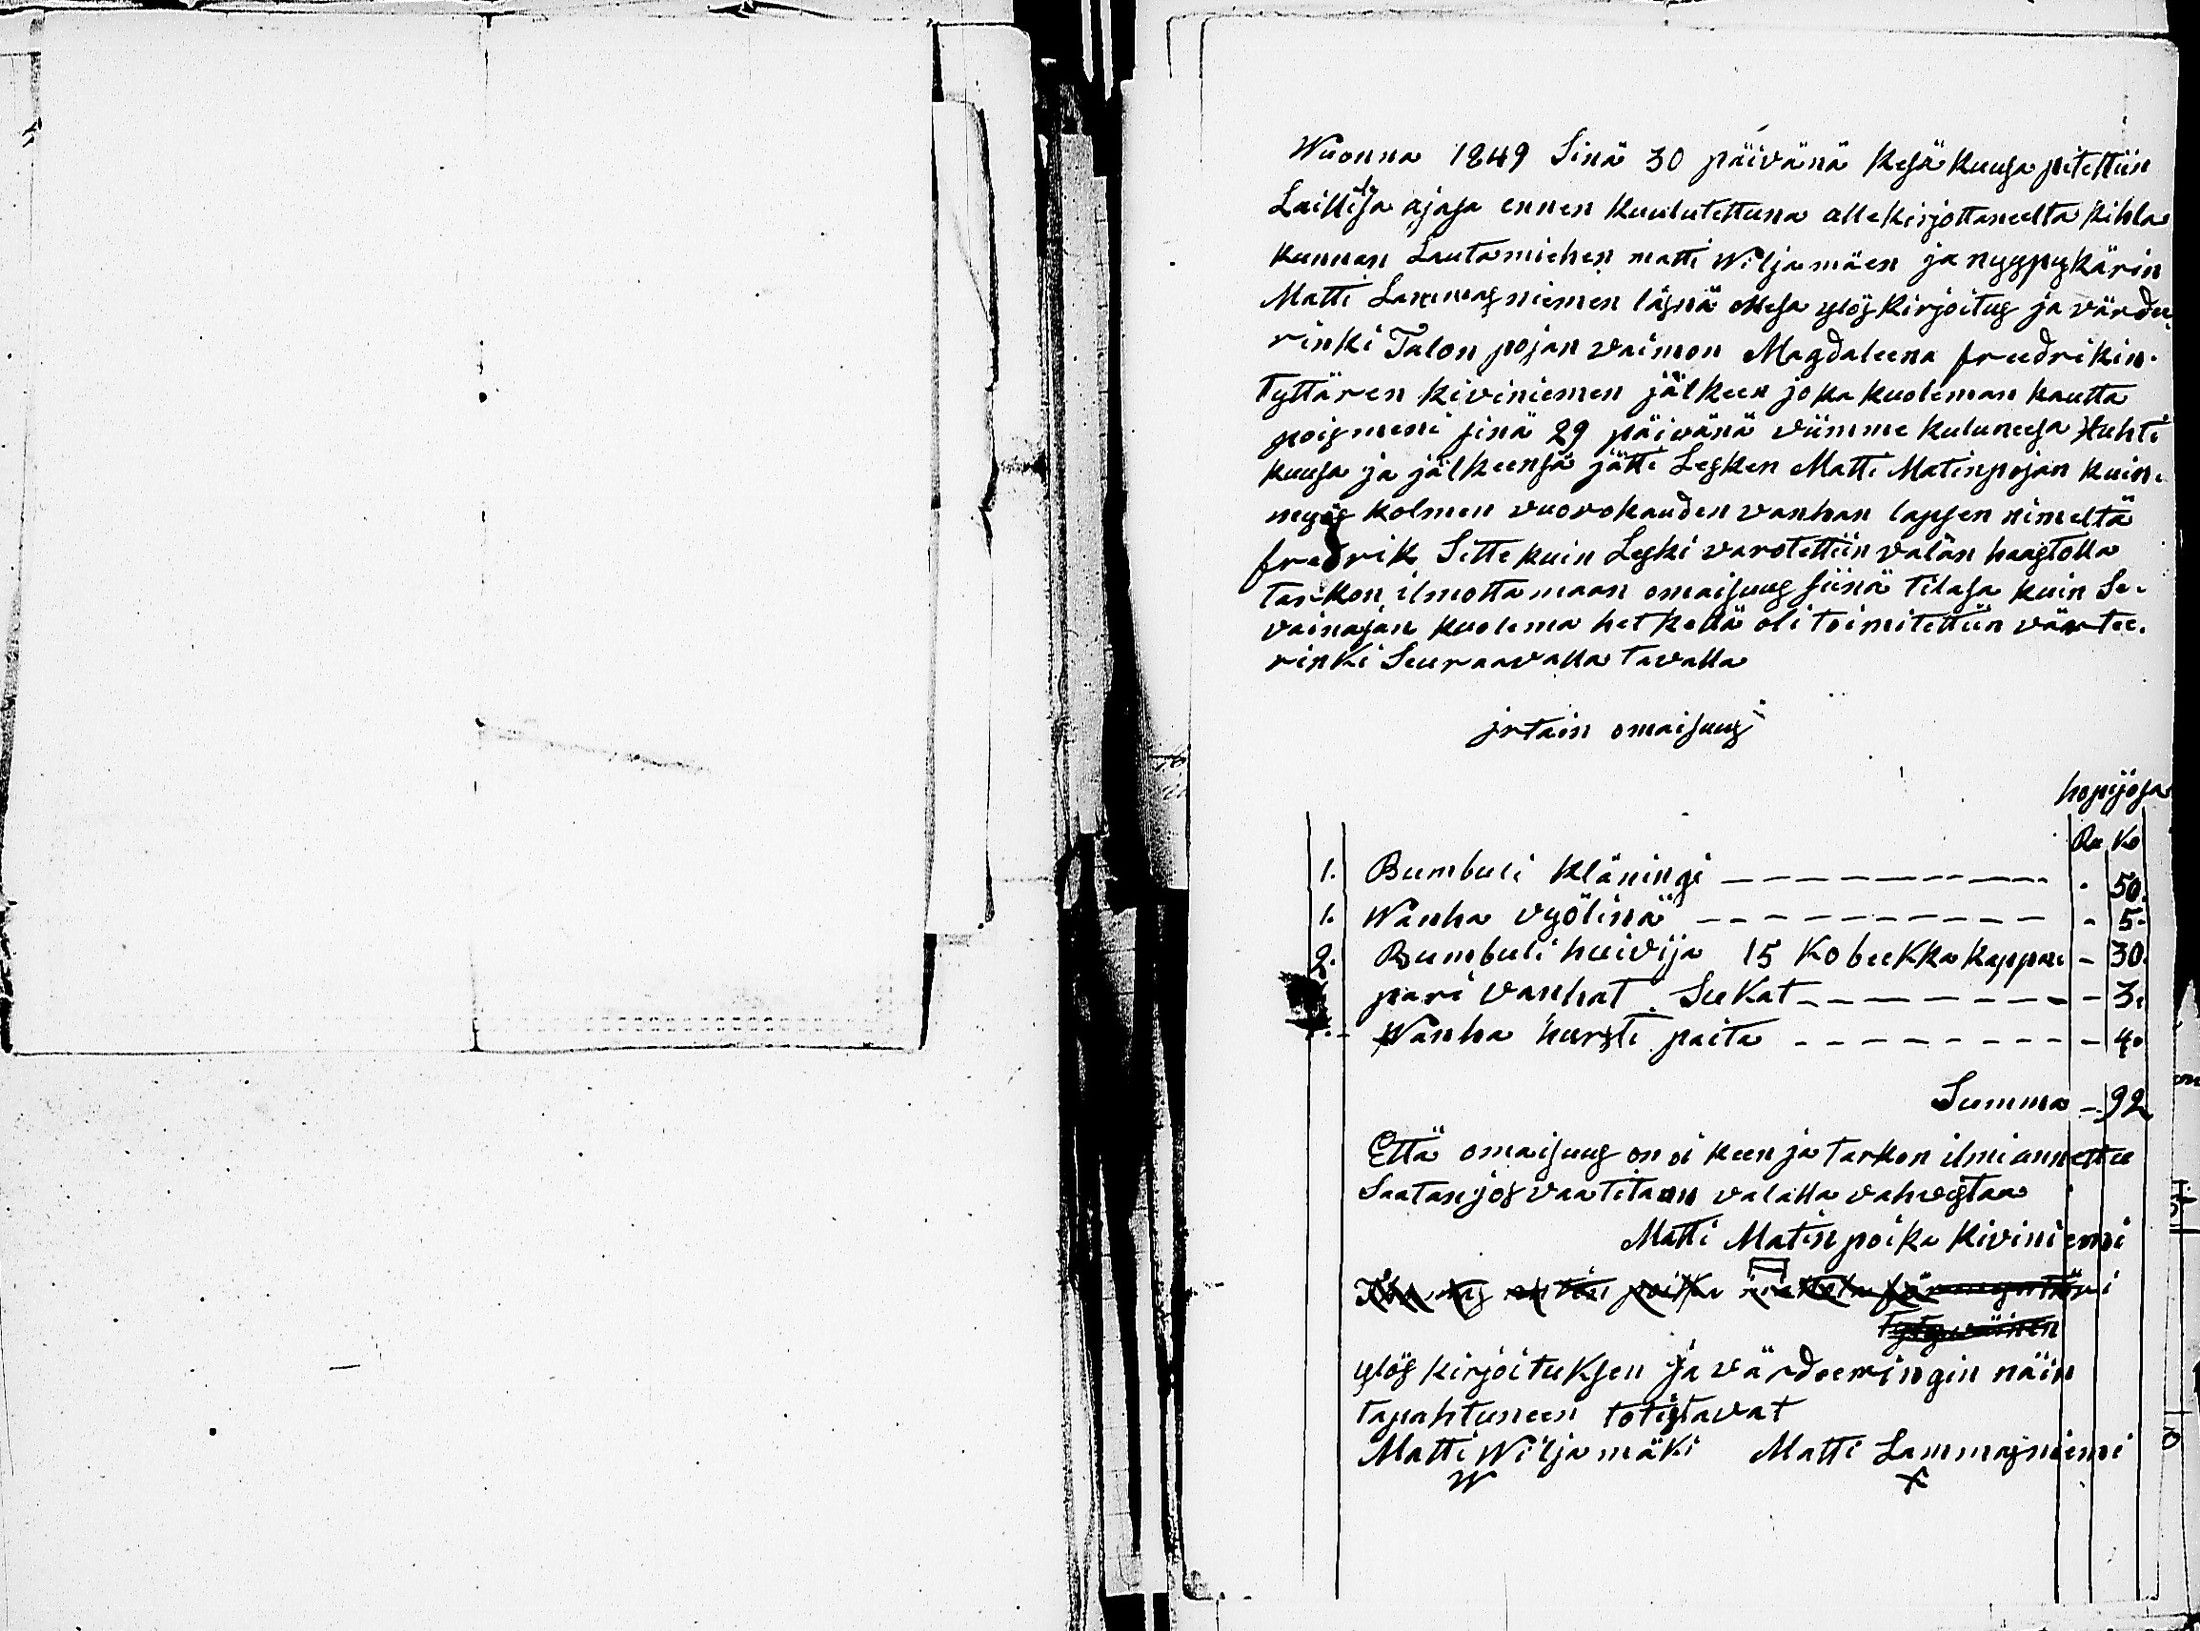 Wuonna 1849 Sinä 30 päivänä Kesäkuusa pitettiin
Laillisa ajasa ennen kuulutettuna allekirjottaneelta kihla
kunnan Lautamiehen matti Wiljamäen ja nyypykärin
Matti Lammasniemen läsnä ollesa ylöskirjoitus ja värdee
rinki Talon pojan vaimon Magdaleena freedrikin
Tyttären kiviniemen jälkeen joka kuoleman kautta
pois meni sinä 29 päivänä viimme kuluneesa Huhti
kuusa ja jälkeensä jätti Lesken Matti Matinpojan kuin
myös kolmen vuorokauden vanhan lapsen nimeltä
fredrik Sitte kuin Leski varotettiin valan haastolla
tarkon ilmottamaan omaisuus siinä tilasa kuin Se
vainajan kuolema hetkellä oli toimitettiin värtee
rinki Seuraavalla tavalla
irtain omaisuus
hopijosa
Ru Ko
1. Bumbuli kläningi - 50.
1. Wanha vyölinä - 5.
2. Bumbuli huivija 15 Ko beekka kappale - 30.
pari vanhat Sukat - 3.
1. Wanha hursti paita - 4.
Summa - 92
Että omaisuus on oikeen ja tarkon ilmiannettu
Saatan jos vaatitaan valalla vahvistaa
Matti Matinpoika Kiviniemi
ylös kirjoituksen ja värdeeringin näin
tapahtuneen totistavat
Matti Wiljamäki Matti Lammasniemi
W X